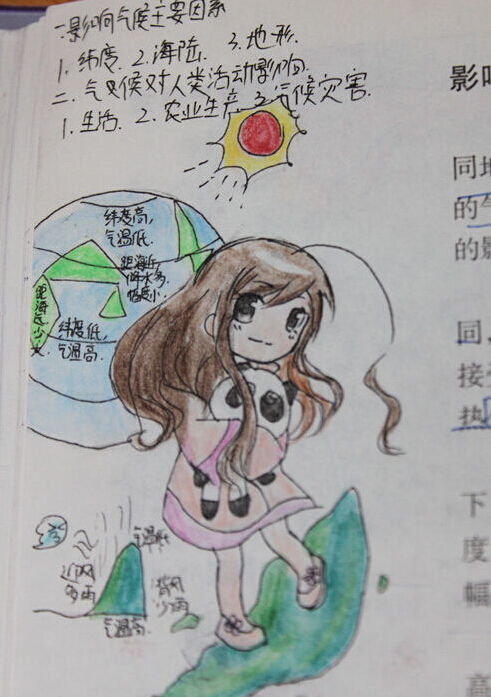 一.影响气候主要因素
1.纬度. 2.海陆. 3.地形.
二.气候对人类活动影响.
1.生活. 2.农业生产 3.气候灾害.
纬度高,
气温低.
距海近
降水多.
幅度小.
距海远少
纬度低,
气温高.
气温低
迎风
多雨
背风
少雨
气温高.
影响
同地
的气
的影
同,
接受
热
下
度
幅
高